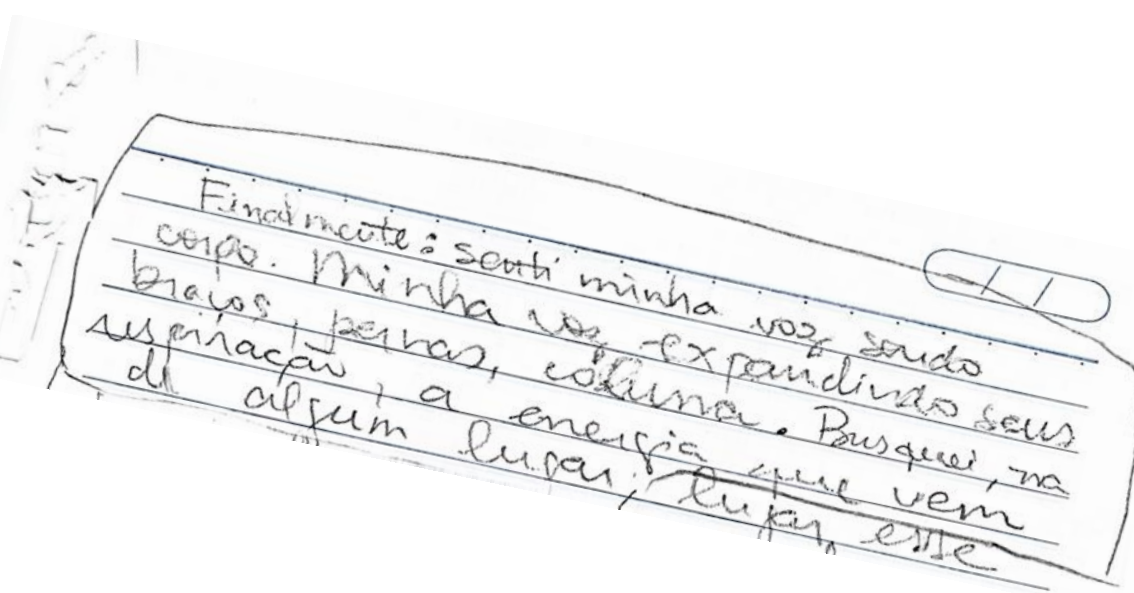 Finalmente: senti minha voz sendo
corpo. Minha voz expandindo seus
braços, pernas, coluna. Busquei, na
respiração, a energia que vem
de algum lugar; lugar esse